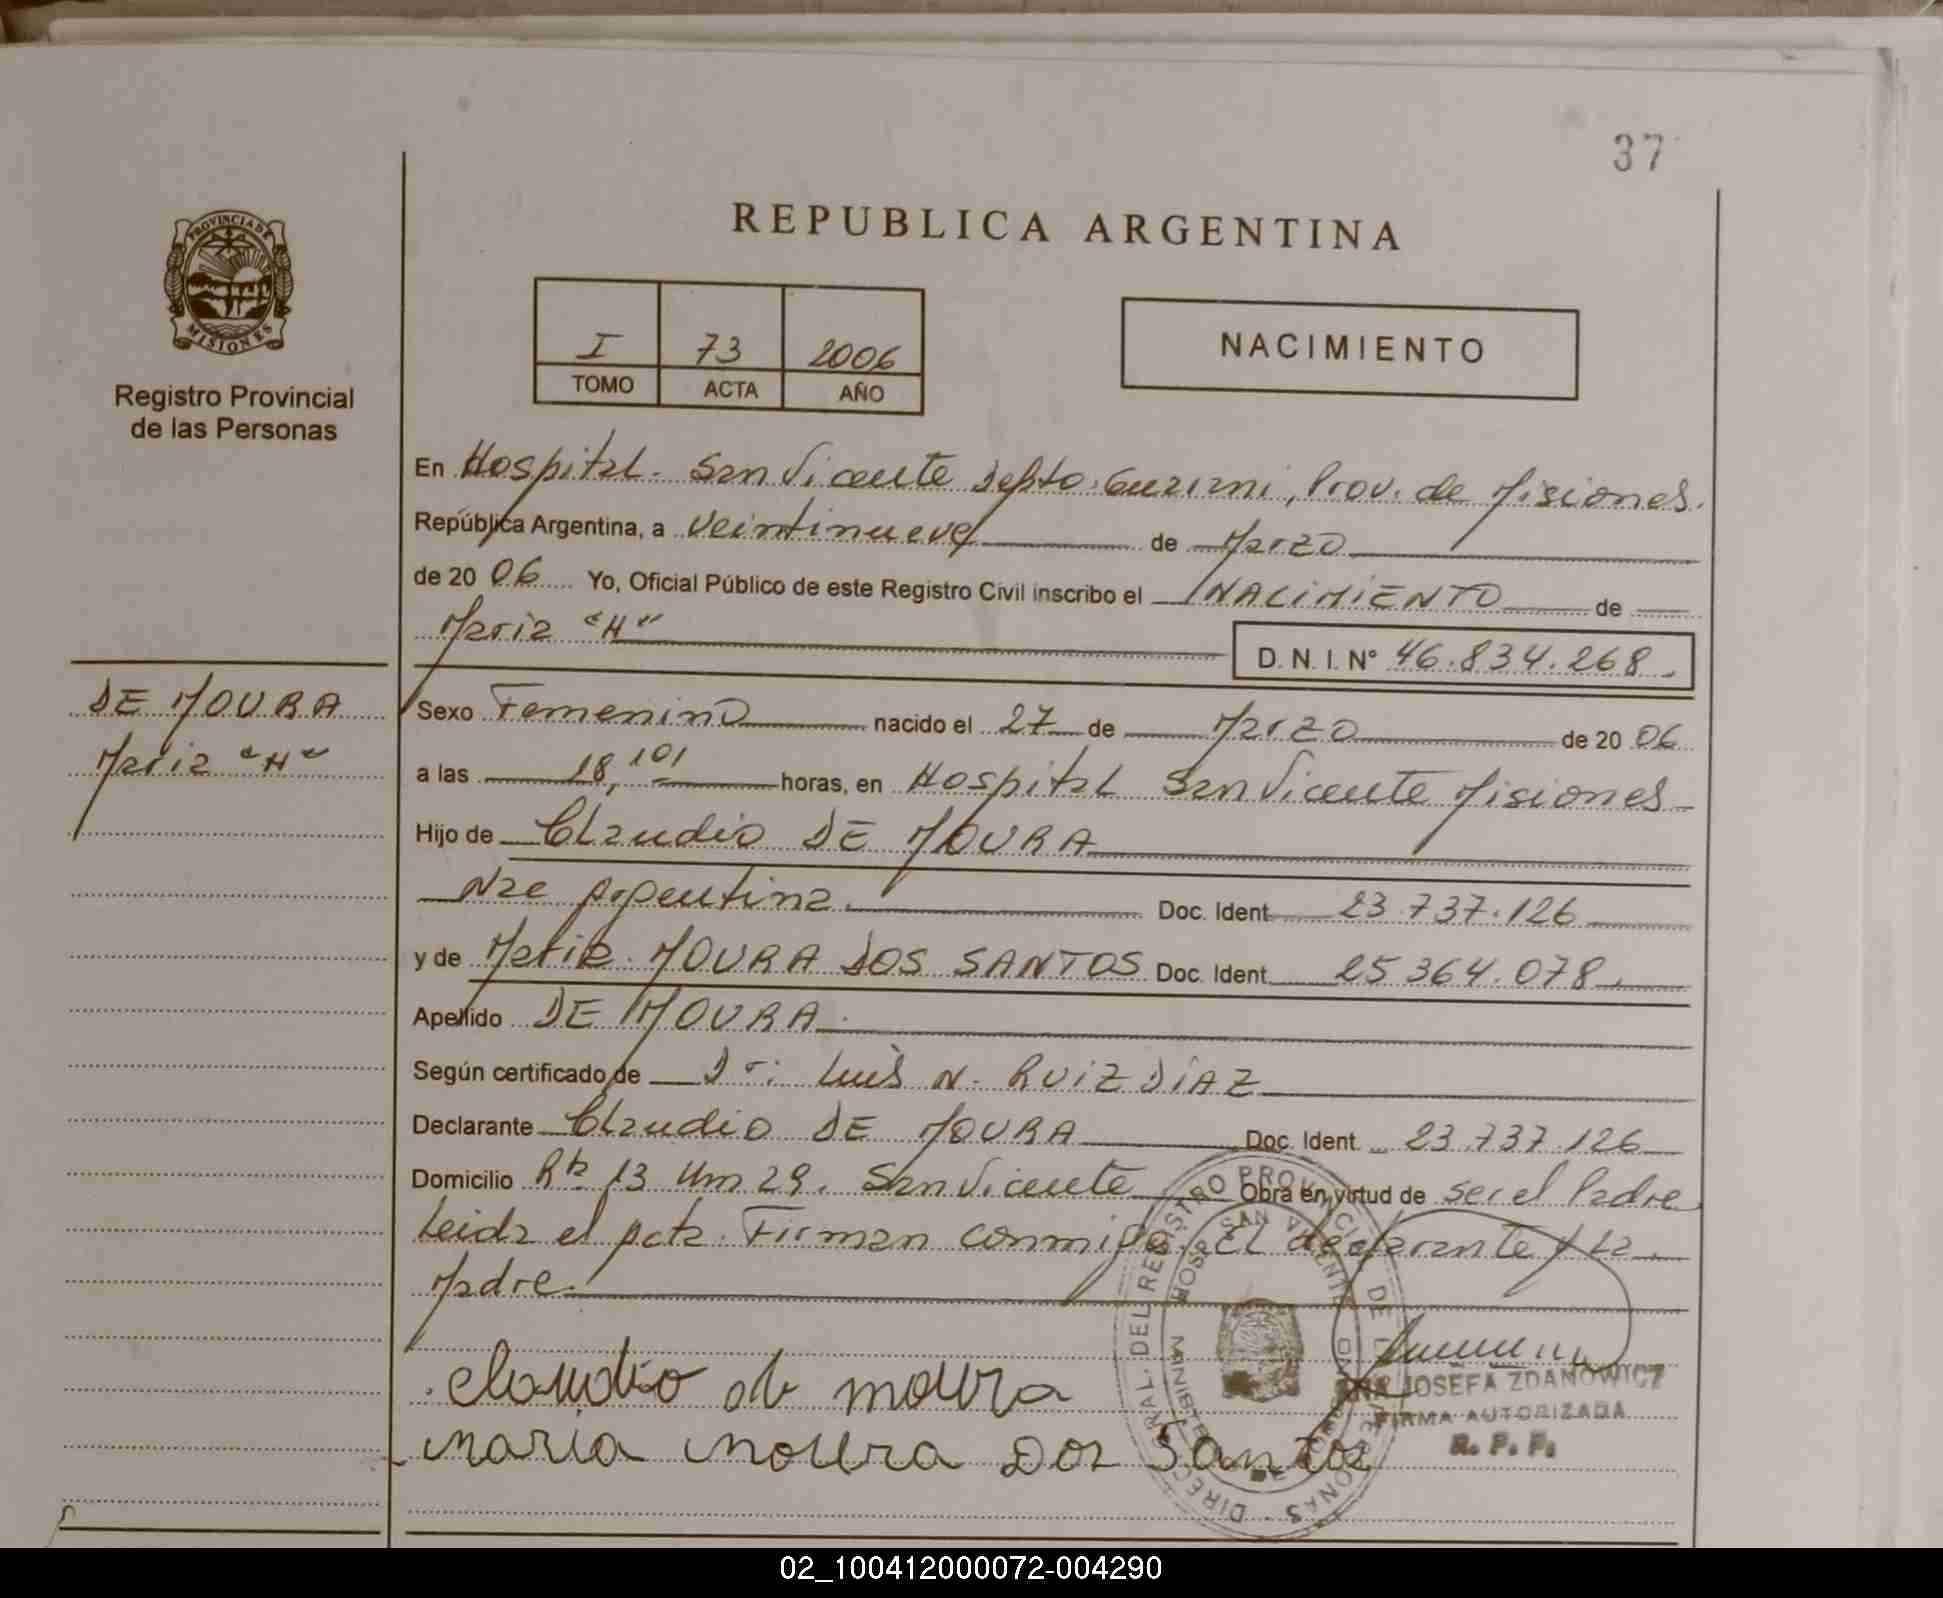 37
REPUBLICA ARGENTINA
PROVINCIA DE
MISIONES
Registro Provincial
de las Personas
I 73 2006
TOMO ACTA AÑO
NACIMIENTO
En Hospital. San Vicente Depto. Guarani, Prov. de Misiones.
República Argentina, a veintinueve de Marzo
de 20 06 Yo, Oficial Público de este Registro Civil inscribo el NACIMIENTO de
Maria "H"
D. N. I. Nº 46.834.268.
DE MOURA
Maria "H"
Sexo Femenino nacido el 27 de Marzo de 20 06
a las 18,10' horas, en Hospital San Vicente Misiones
Hijo de Claudio DE MOURA
Nac Argentina. Doc. Ident. 23.737.126
y de Maria. MOURA DOS SANTOS Doc. Ident. 25.364.078.
Apellido DE MOURA.
Según certificado de Dr: Luis N. RUIZ DÍAZ
Declarante Claudio DE MOURA Doc. Ident. 23.737.126
Domicilio Rta 13 Km 29. San Vicente Obra en virtud de ser el Padre
Leida el Acta. Firman conmigo, El declarante y La
Madre.
claudio de moura
JOSEFA ZDANOWICZ
FIRMA AUTORIZADA
R. P. P.
maria moura Dos Santos
02_100412000072-004290